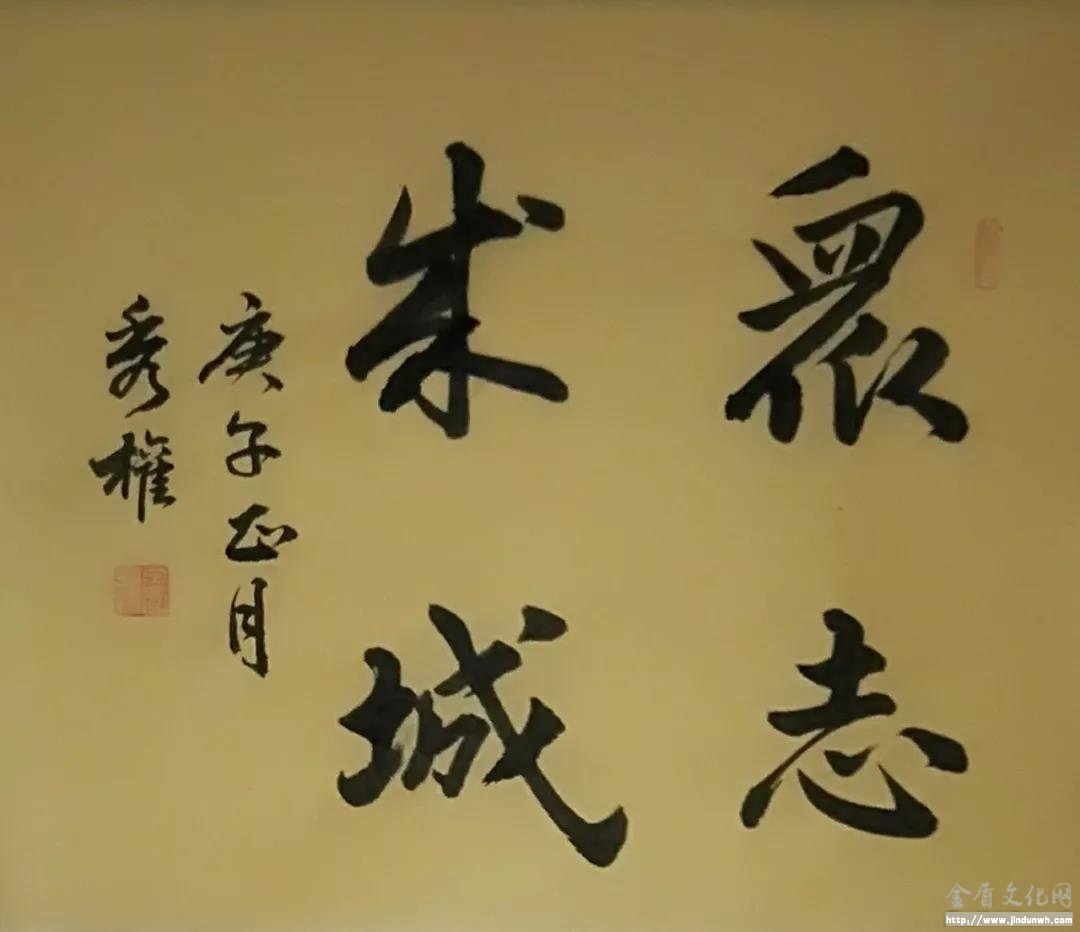 衆志
成城
庚子正月
秀權
金盾文化网
http://www.jindunwh.com